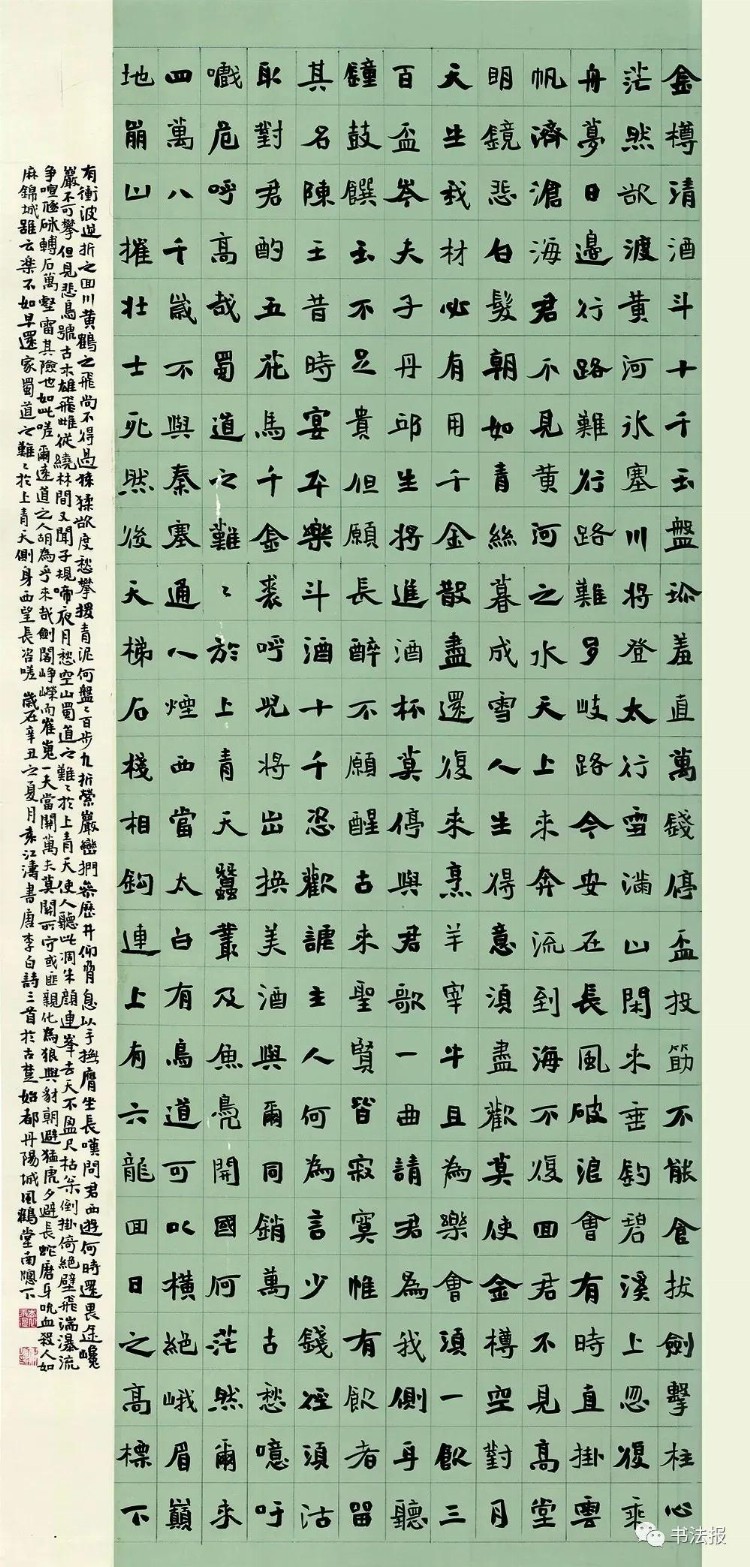 金樽清酒斗十千玉盤珎羞直萬錢停盃投筯不能食拔劍擊柱心
茫然欲渡黄河氷塞川將登太行雪滿山閑来垂釣碧溪上忽復乘
舟夢日邊行路難行路難多岐路今安在長風破浪會有時直掛雲
帆濟滄海君不見黄河之水天上来奔流到海不復回君不見高堂
明鏡悲白髮朝如青絲暮成雪人生得意須盡歡莫使金樽空對月
天生我材必有用千金散盡還復来烹羊宰牛且為樂會須一飲三
百盃岑夫子丹邱生將進酒杯莫停與君歌一曲請君為我側耳聽
鐘鼓饌玉不足貴但願長醉不願醒古来聖賢皆寂寞惟有飲者留
其名陳王昔時宴平樂斗酒十千恣歡謔主人何為言少錢徑須沽
取對君酌五花馬千金裘呼兒將出換美酒與爾同銷萬古愁噫吁
嚱危呼高哉蜀道之難〻於上青天蠶叢及魚鳧開國何茫然爾来
四萬八千歲不與秦塞通人煙西當太白有鳥道可以橫絕峨眉巔
地崩山摧壯士死然後天梯石棧相鈎連上有六龍回日之高標下
有衝波逆折之回川黄鶴之飛尚不得過猿猱欲度愁攀援青泥何盤〻百步九折縈巖巒捫參歷井仰脅息以手撫膺坐長嘆問君西遊何時還畏途巉
巖不可攀但見悲鳥號古木雄飛雌從繞林間又聞子規啼夜月愁空山蜀道之難〻於上青天使人聽此凋朱顔連峯去天不盈尺枯松倒掛倚絕壁飛湍瀑流
争喧豗砯轉石萬壑雷其險也如此嗟爾遠道之人胡為乎来哉劍閣崢嶸而崔嵬一夫當關萬夫莫開所守或匪親化為狼與豺朝避猛虎夕避長蛇磨牙吮血殺人如
麻錦城雖云樂不如早還家蜀道之難〻於上青天側身西望長咨嗟 歲在辛丑之夏月袁江濤書唐李白詩三首於古楚始都丹陽城風鶴堂南牕下
书法报